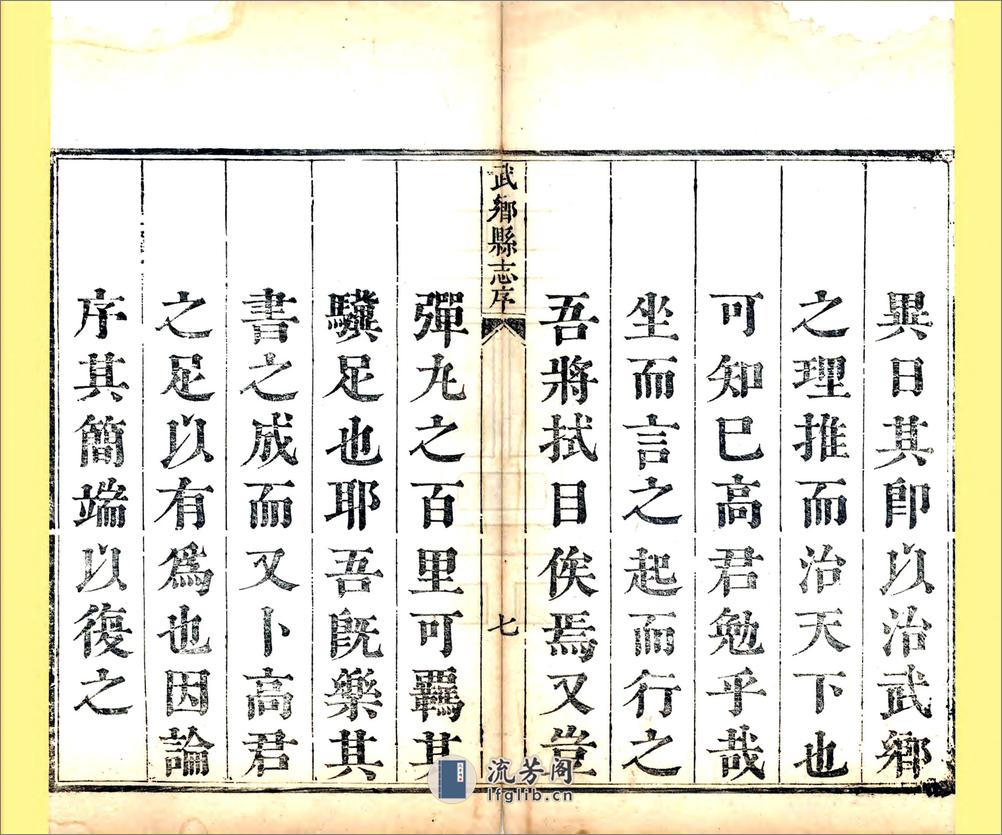 異日其卽以治武鄉
之理推而治天下也
可知已高君勉乎哉
坐而言之起而行之
吾將拭目俟焉又豈
武鄉縣志序
七
彈九之百里可羈其
驥足也耶吾旣樂其
書之成而又卜高君
之足以有爲也因論
序其簡端以復之
流芳阁
lfglib.cn